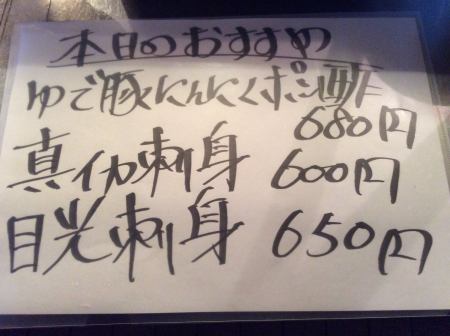 本日のおすすめ
ゆで豚にんにくポン酢
680円
真イカ刺身 600円
目光刺身 650円